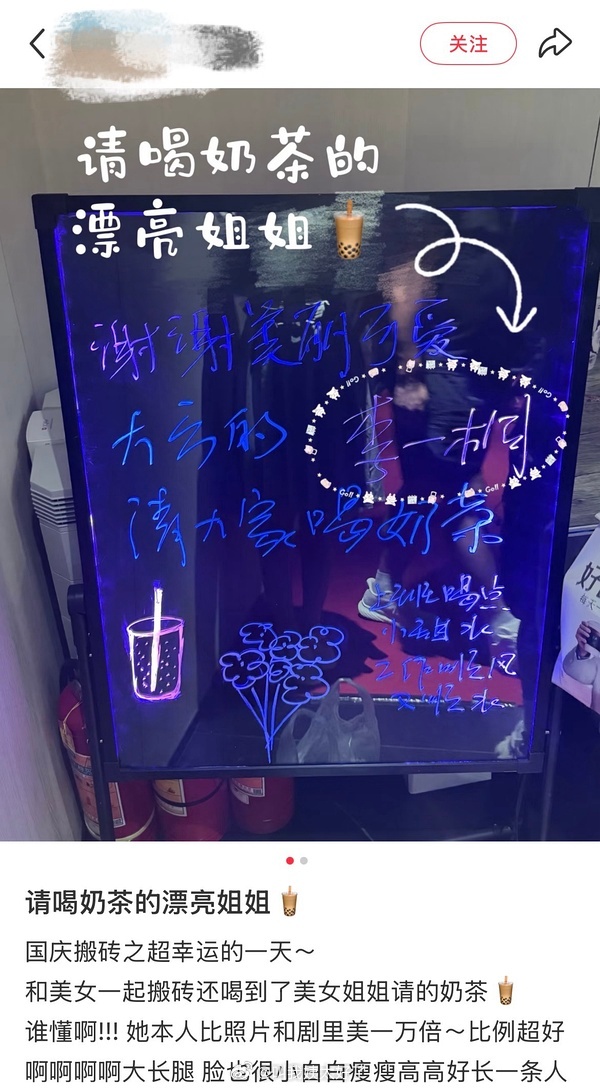 关注
请喝奶茶的
漂亮姐姐🧋
谢谢美丽可爱
大方的 李一桐
请大家喝奶茶
上班喝点
小甜水
工作顺风
又顺水
请喝奶茶的漂亮姐姐🧋
国庆搬砖之超幸运的一天～
和美女一起搬砖还喝到了美女姐姐请的奶茶🧋
谁懂啊!!! 她本人比照片和剧里美一万倍～比例超好
啊啊啊啊大长腿 脸也很小白白瘦瘦高高好长一条人